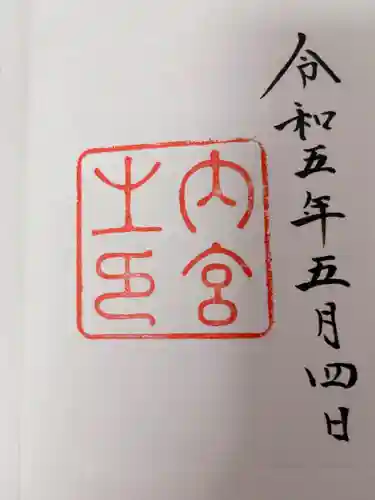 令和五年五月四日
内宮
之印